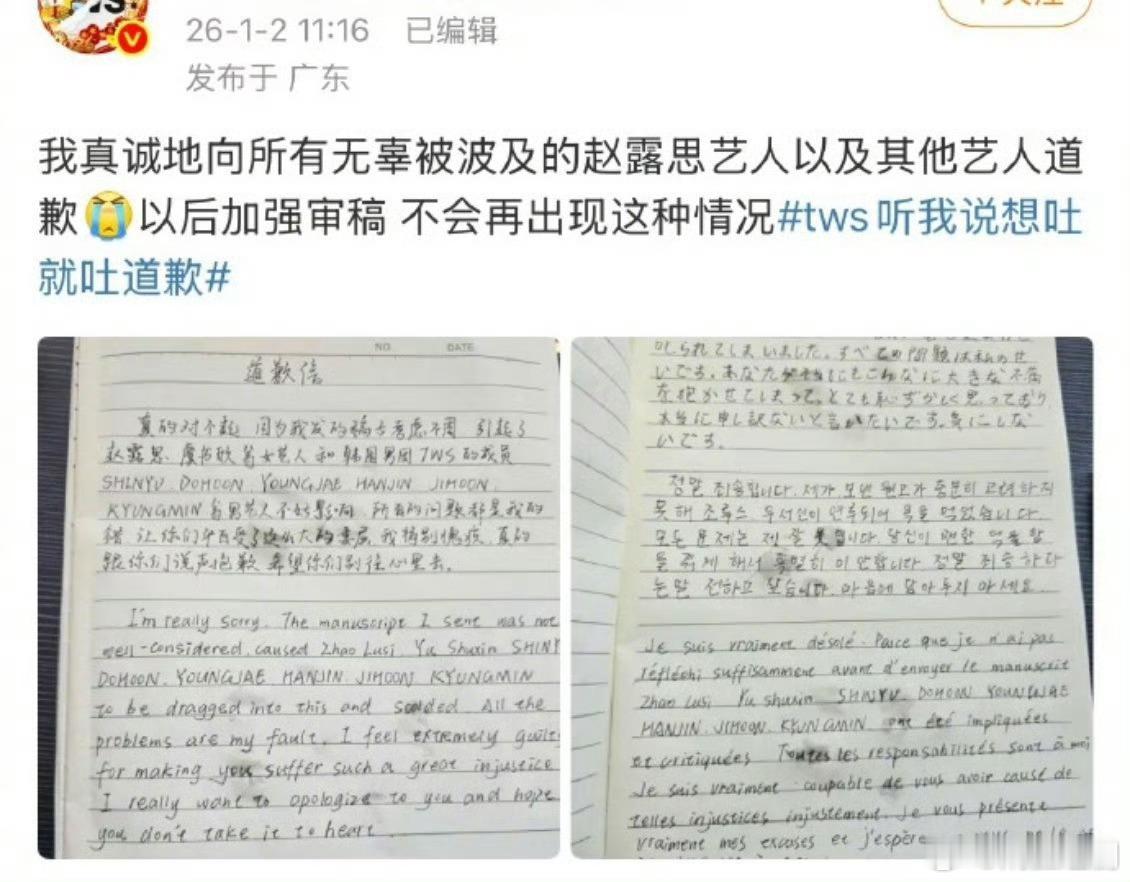 26-1-2 11:16 已编辑
发布于 广东
我真诚地向所有无辜被波及的赵露思艺人以及其他艺人道
歉😭以后加强审稿 不会再出现这种情况#tws听我说想吐
就吐道歉#
NO.
DATE
道歉信
真的对不起 因为我发的稿子考虑不周 引起了
赵露思、虞书欣等女艺人和韩国男团TWS的成员
SHINYU. DOHOON. YOUNGJAE HANJIN JIHOON.
KYUNGMIN 等男艺人不好影响 所有的问题都是我的
错 让你们 受了这么大的委屈 我特别愧疚 真的
跟你们说声抱歉 希望你们别往心里去。
I'm really sorry. The manuscript I sent was not
well-considered, caused Zhao Lusi, Yu Shuxin SHINY
DOHOON. YOUNGJAE HANJIN. JIHOON KYUNGMIN
to be dragged into this and scolded. All the
problems are my fault. I feel extremely guilt
for making you suffer such a great injustice
I really want to apologize to you and hope
you don't take it to heart.
叱られてしまいました。すべての問題は私のせ
いです。あなた にもこんなに大きな不満
を抱かせてしまって、とても恥ずかしく思っており
本当に申し訳ないと言いたいです。気にしな
いです。
정말 죄송합니다. 제가 보낸 원고가 충분히 고려하지
못해 조루스. 우서신이 연루되어 욕을 먹었습니다.
모든 문제는 제 잘못입니다. 당신이 억울함
을 해서 이 안합니다 정말 죄송하다
는 말 전하고 싶습니다. 마음에 담아두지 마세요.
Je suis vraiment désolé. Parce que je n'ai pas
réfléchi suffisamment avant d'envoyer le manuscrit
Zhao Lusi. Yu Shuxin. SHINYU. DOHOON YOUNGJAE
HANJIN. JIHOON. KYUNGMIN ont été impliquées
et critiquées Toutes les responsabilités sont à moi
Je suis vraiment coupable de vous avoir causé de
telles injustices injustement. Je vous présente
vraiment mes excuses et j'espère